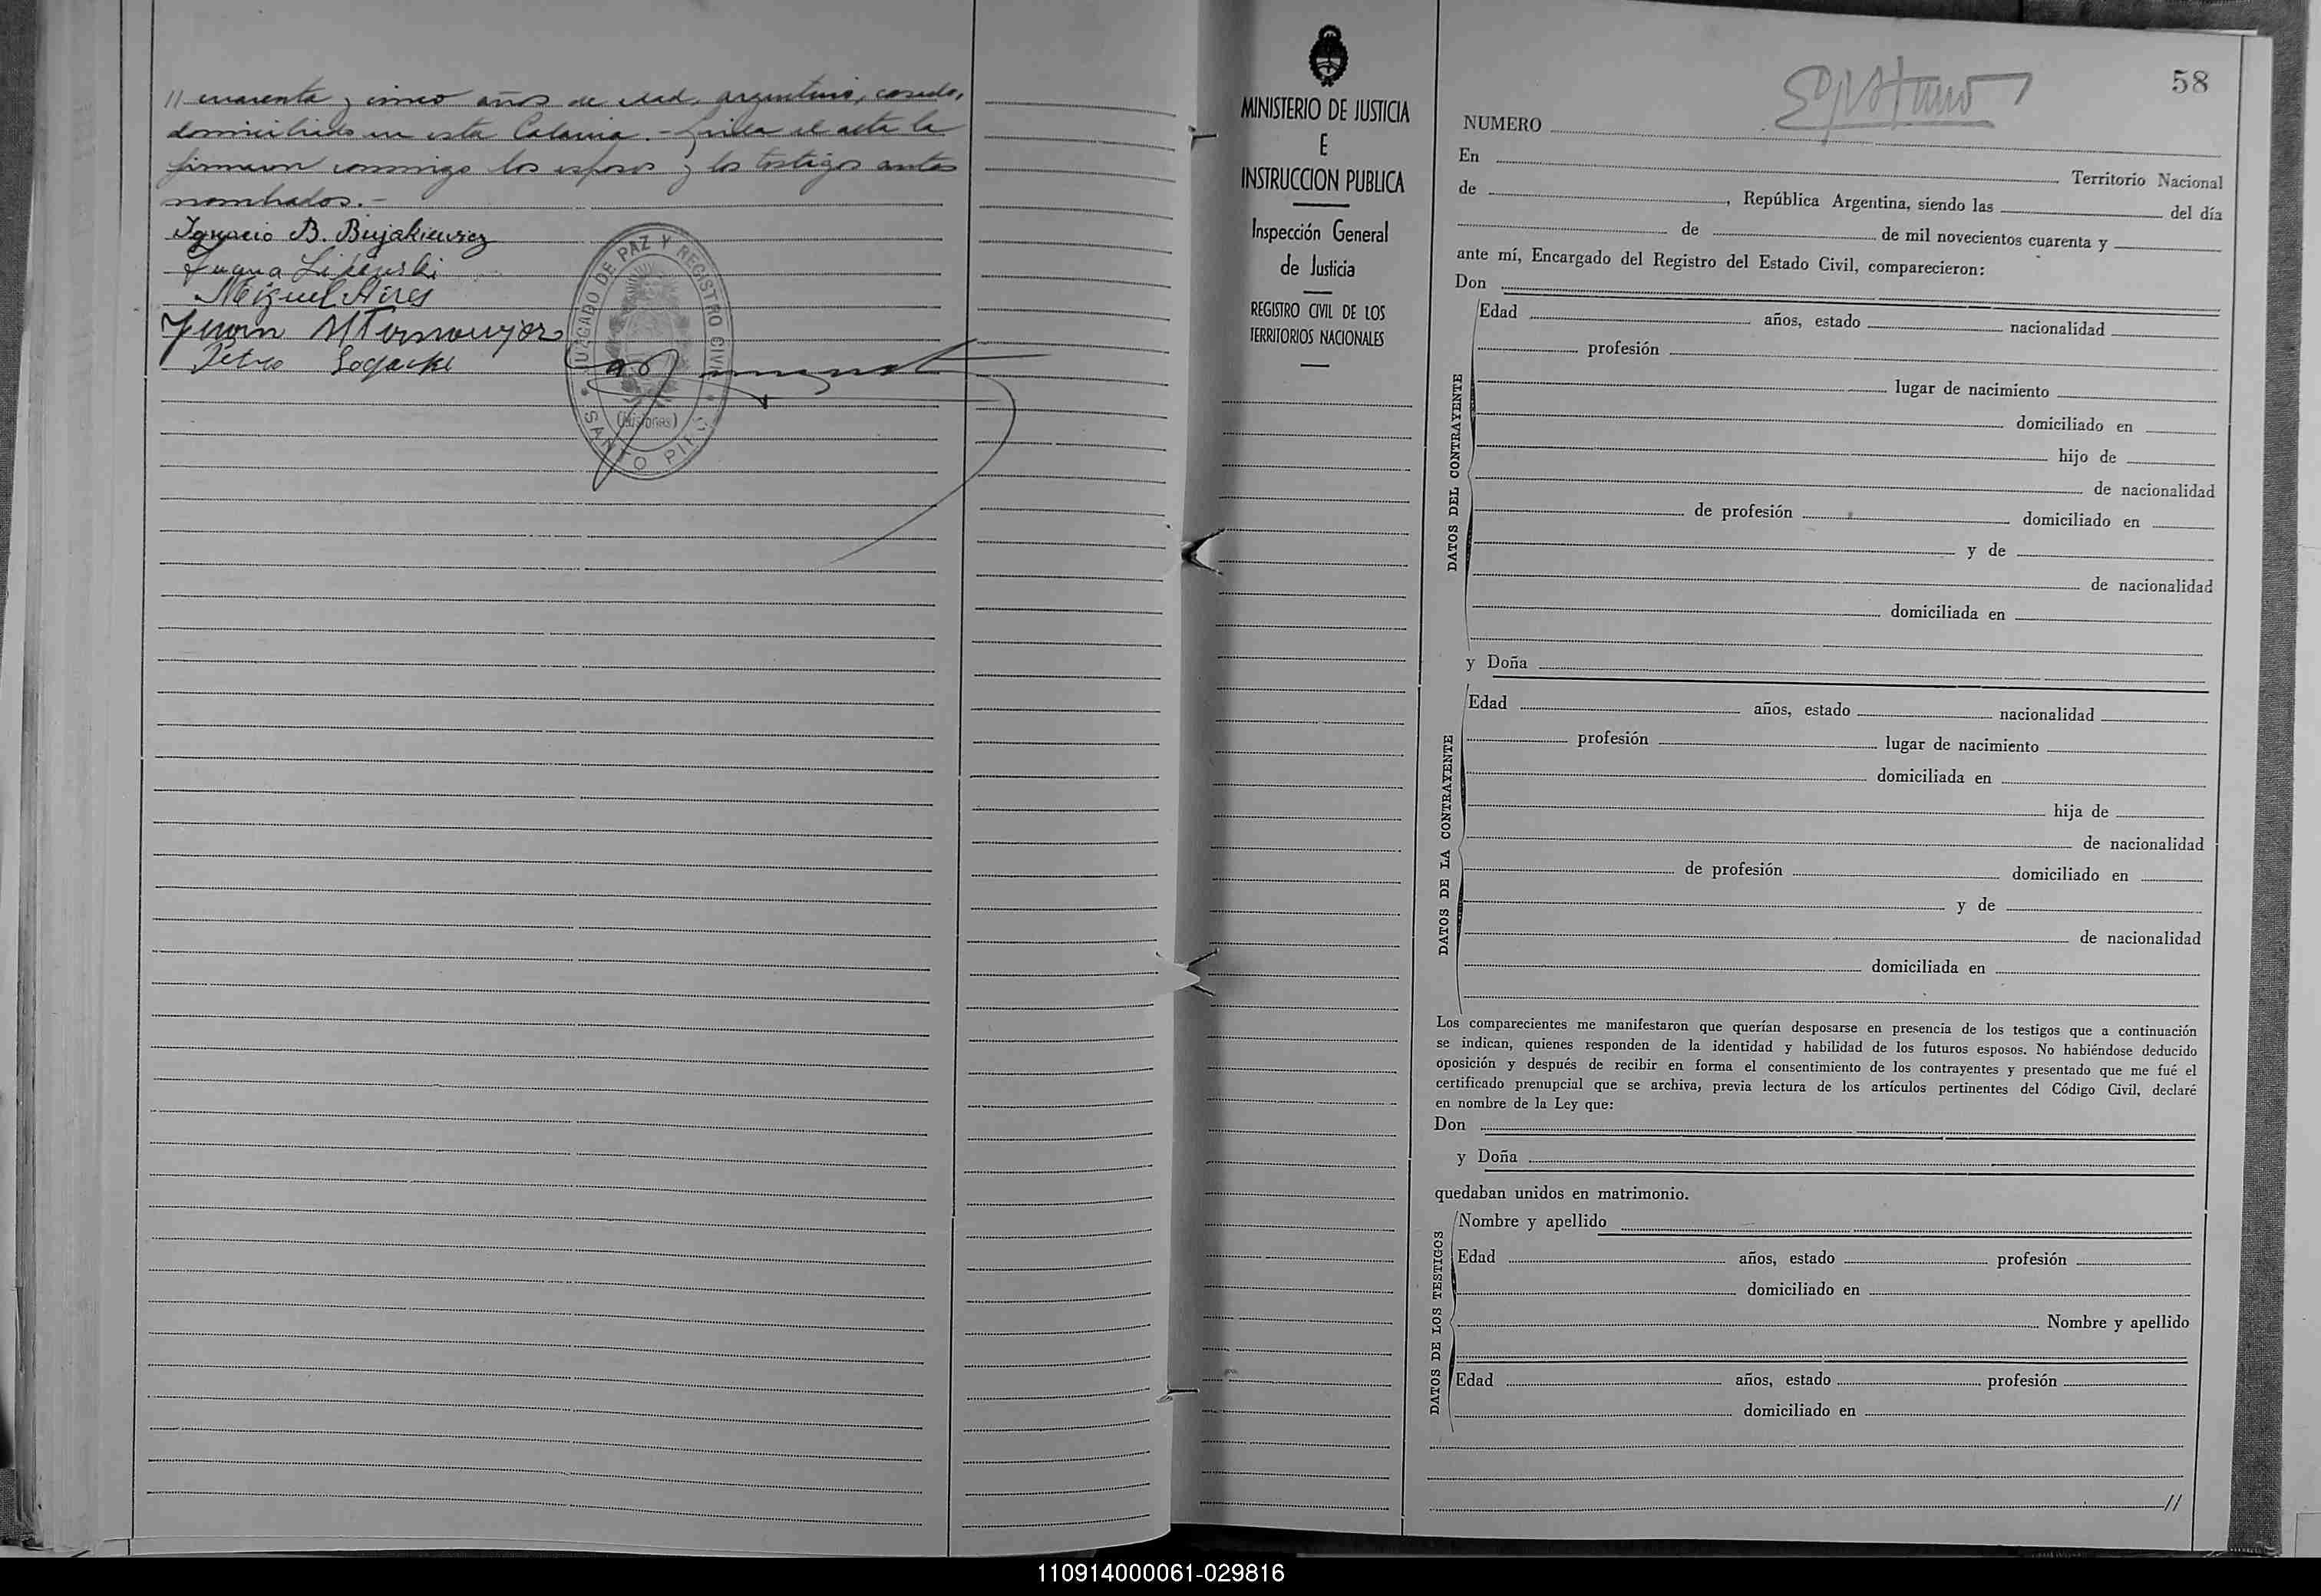 // cuarenta y cinco años de edad, argentino, casado,
domiciliado en esta Colonia.- Leida el acta la
firmaron conmigo los esposos y los testigos antes
nombrados.-
Ignacio B. Bujakiewicz
Juana
Miguel Aires
Juan
Petro
JUZGADO DE PAZ Y REGISTRO CIVIL
(Misiones)
SANTO PIPÓ
MINISTERIO DE JUSTICIA
E
INSTRUCCION PUBLICA
Inspección General
de Justicia
REGISTRO CIVIL DE LOS
TERRITORIOS NACIONALES
58
NUMERO
En Territorio Nacional
de , República Argentina, siendo las del día
de de mil novecientos cuarenta y
ante mí, Encargado del Registro del Estado Civil, comparecieron:
Don
DATOS DEL CONTRAYENTE
Edad años, estado nacionalidad
profesión
lugar de nacimiento
domiciliado en
hijo de
de nacionalidad
de profesión domiciliado en
y de
de nacionalidad
domiciliada en
y Doña
DATOS DE LA CONTRAYENTE
Edad años, estado nacionalidad
profesión lugar de nacimiento
domiciliada en
hija de
de nacionalidad
de profesión domiciliado en
y de
de nacionalidad
domiciliada en
Los comparecientes me manifestaron que querían desposarse en presencia de los testigos que a continuación
se indican, quienes responden de la identidad y habilidad de los futuros esposos. No habiéndose deducido
oposición y después de recibir en forma el consentimiento de los contrayentes y presentado que me fué el
certificado prenupcial que se archiva, previa lectura de los artículos pertinentes del Código Civil, declaré
en nombre de la Ley que:
Don
y Doña
quedaban unidos en matrimonio.
DATOS DE LOS TESTIGOS
Nombre y apellido
Edad años, estado profesión
domiciliado en
Nombre y apellido
Edad años, estado profesión
domiciliado en
//
110914000061-029816